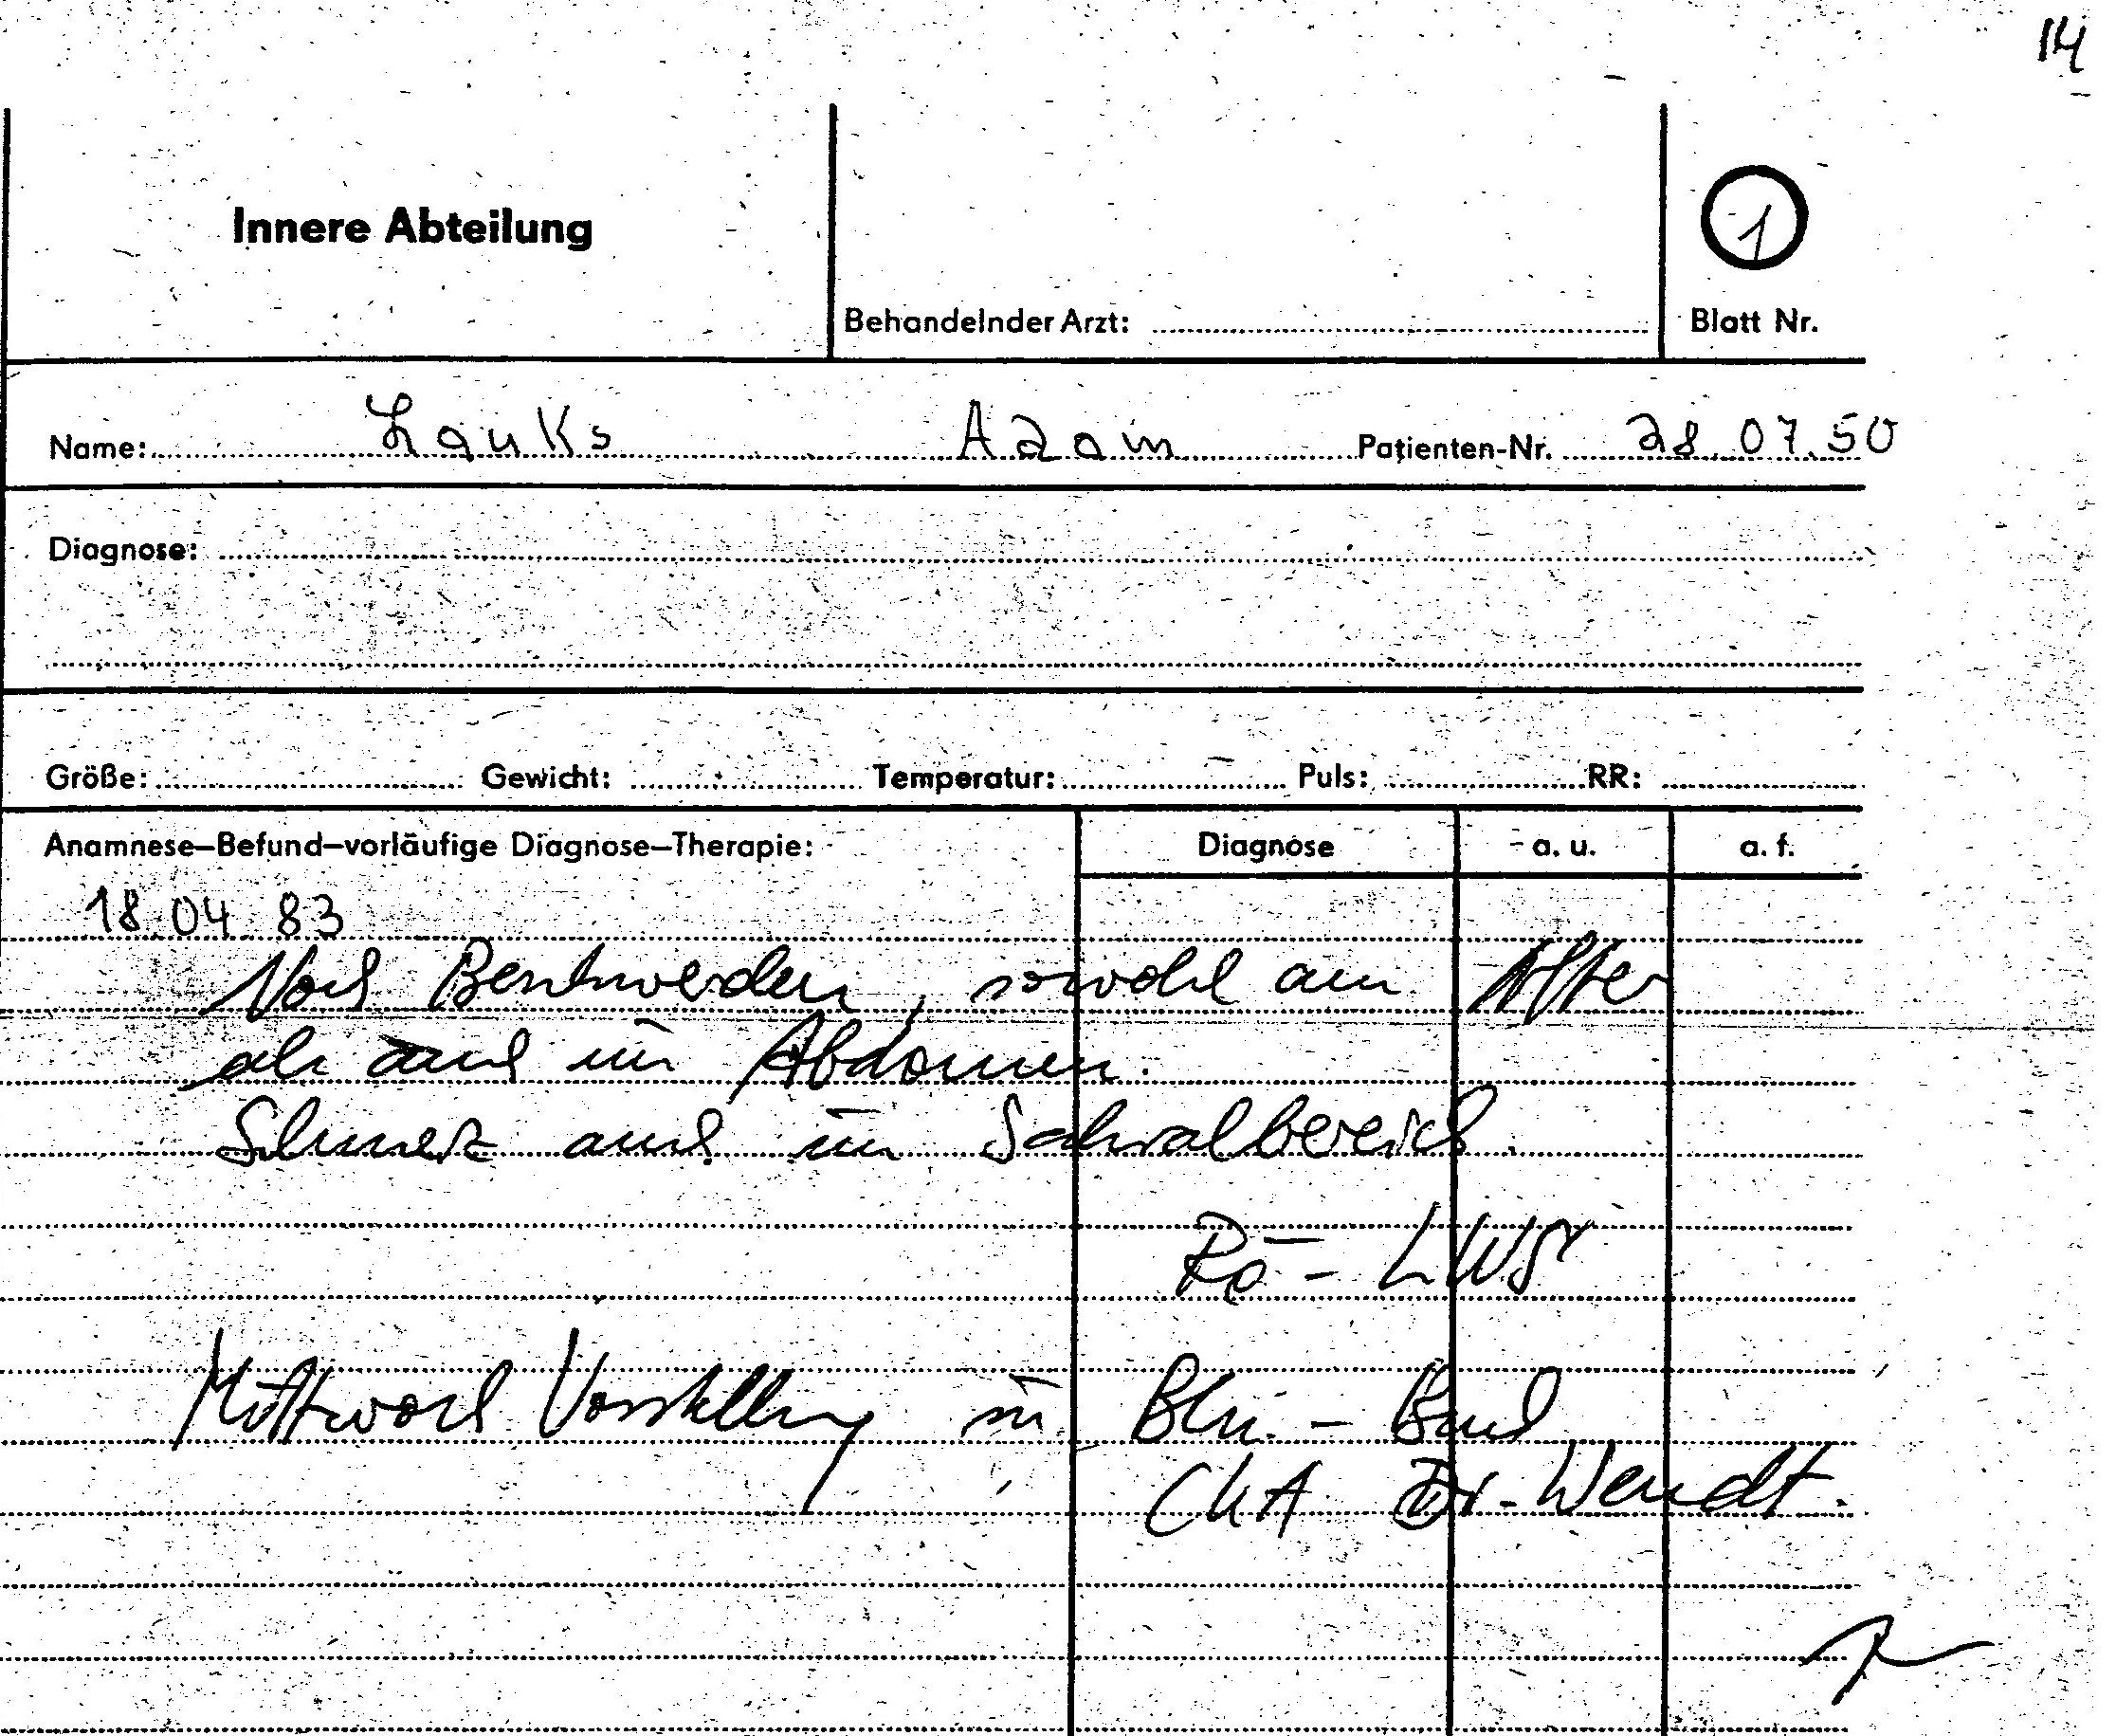 14
Innere Abteilung
1
Behandelnder Arzt:
Blatt Nr.
Name: Lauks Adam Patienten-Nr. 28.07.50
Diagnose:
Größe: Gewicht: Temperatur: Puls: RR:
Anamnese–Befund–vorläufige Diagnose–Therapie: Diagnose a. u. a. f.
18.04.83
Noch Beschwerden, sowohl am After
als auch im Abdomen.
Schmerz auch im Sakralbereich.
Rö - LWS
Mittwoch Vorstellung in Bln. - Buch
ChA Dr. Wendt.